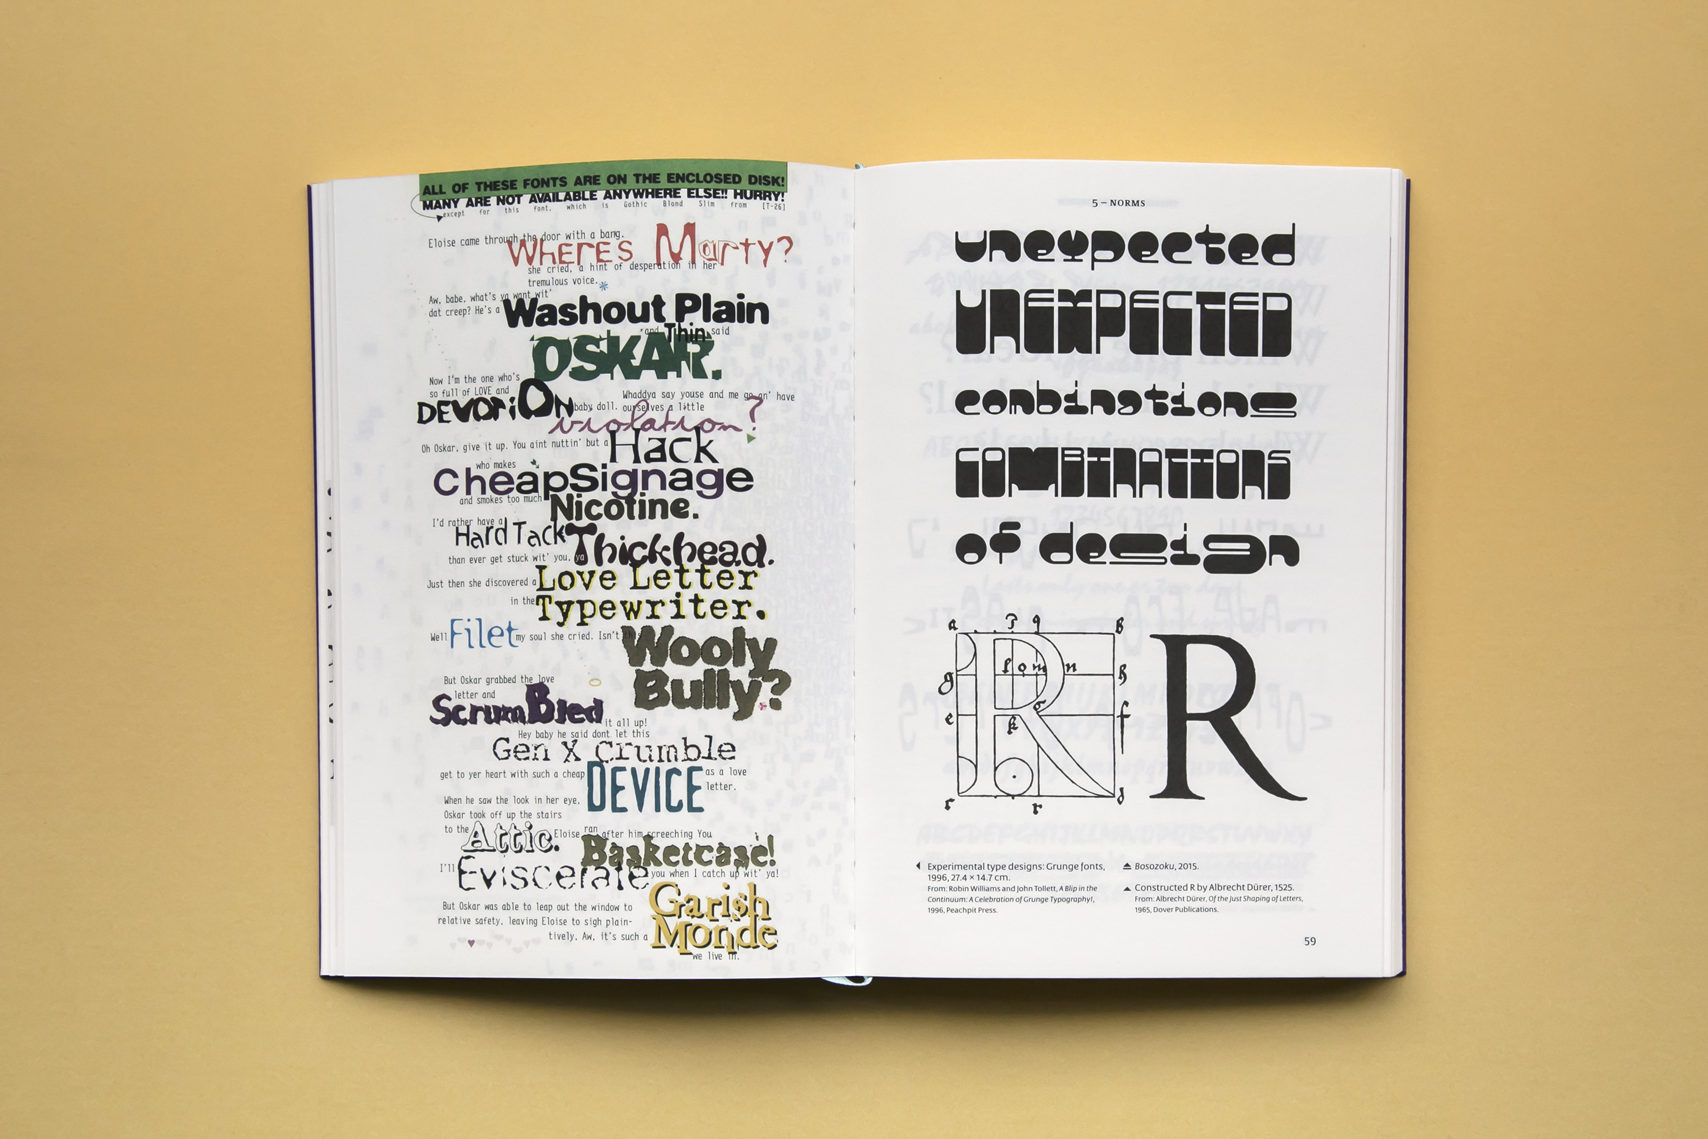 ALL OF THESE FONTS ARE ON THE ENCLOSED DISK!
MANY ARE NOT AVAILABLE ANYWHERE ELSE!! HURRY!
except for this font, which is Gothic Blond Slim from [T-26]
Eloise came through the door with a bang.
WHERES Marty?
she cried, a hint of desperation in her
tremulous voice.
Aw, babe, what's ya want wit'
dat creep? He's a
Washout Plain
and Thin said
OSKAR.
Now I'm the one who's
so full of LOVE and
DEVOTiON
Whaddya say youse and me go an' have
baby doll. ourselves a little
violation?
Oh Oskar, give it up. You aint nuttin' but a
Hack
who makes
CheapSignage
and smokes too much
Nicotine.
I'd rather have a
Hard Tack
than ever get stuck wit' you, ya
Thickhead.
Just then she discovered a
Love Letter
in the
Typewriter.
Well Filet my soul she cried. Isn't this
Wooly
Bully?
But Oskar grabbed the love
letter and
ScrumBled
it all up!
Hey baby he said dont let this
Gen X Crumble
get to yer heart with such a cheap
DEVICE
as a love
letter.
When he saw the look in her eye,
Oskar took off up the stairs
to the
Attic.
Eloise ran after him screeching You
Basketcase!
I'll
Eviscerate
you when I catch up wit' ya!
But Oskar was able to leap out the window to
relative safety, leaving Eloise to sigh plain-
tively, Aw, it's such a
Garish
Monde
we live in.
5 – NORMS
unexpected
UNEXPECTED
combinations
COMBINATIONS
of design
a p q b
g l o m n h
e k f
c r d
R
Experimental type designs: Grunge fonts,
1996, 27.4 × 14.7 cm.
From: Robin Williams and John Tollett, A Blip in the
Continuum: A Celebration of Grunge Typography!,
1996, Peachpit Press.
Bosozoku, 2015.
Constructed R by Albrecht Dürer, 1525.
From: Albrecht Dürer, Of the Just Shaping of Letters,
1965, Dover Publications.
59